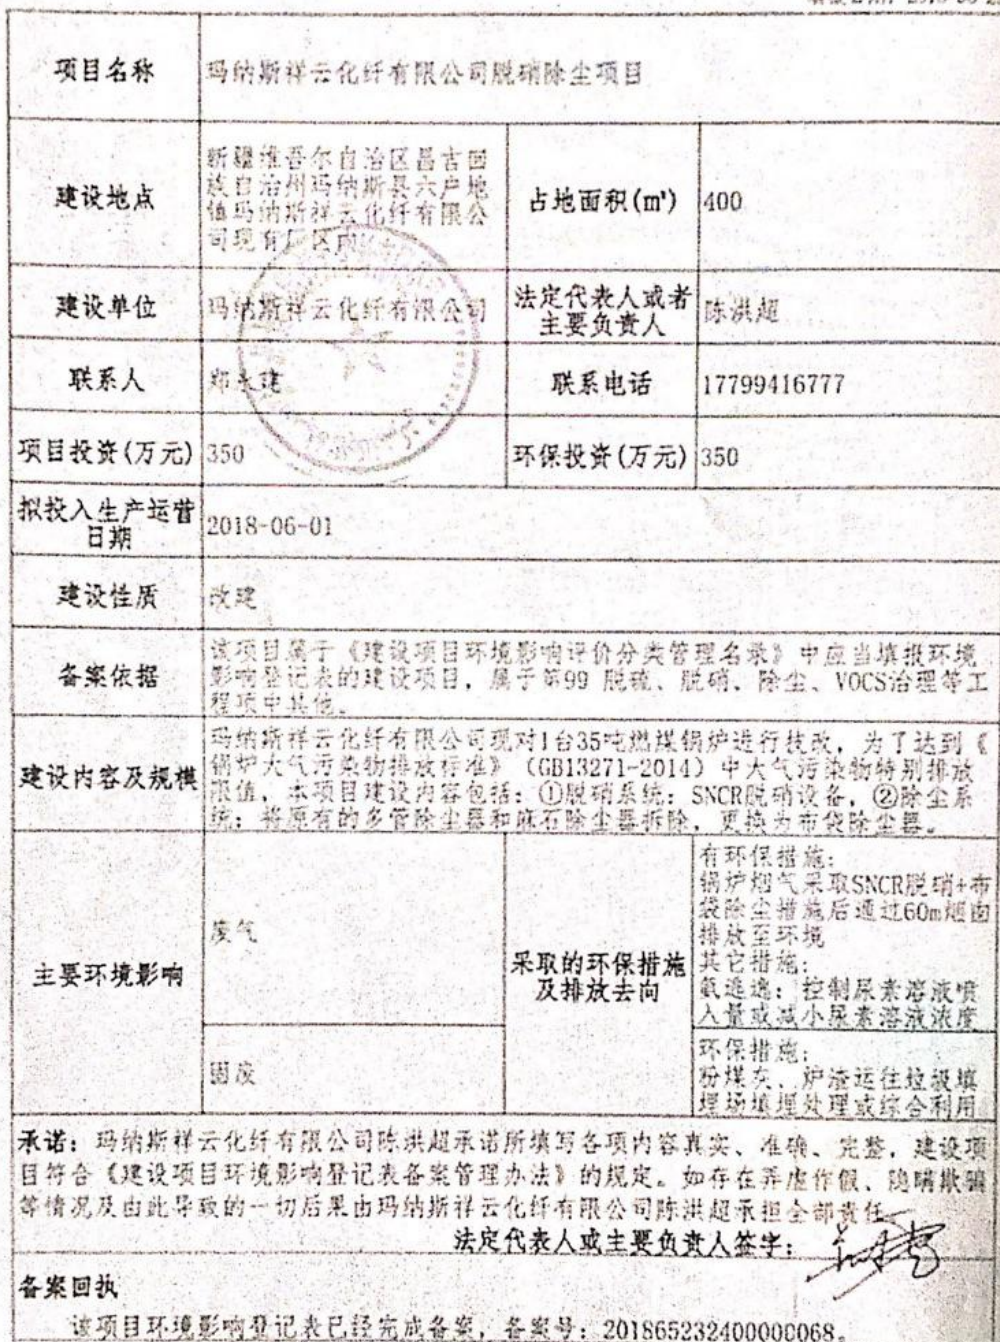 项目名称
玛纳斯祥云化纤有限公司脱硝除尘项目
建设地点
新疆维吾尔自治区昌吉回
族自治州玛纳斯县六户地
镇玛纳斯祥云化纤有限公
司现有厂区内
占地面积(㎡)
400
建设单位
玛纳斯祥云化纤有限公司
法定代表人或者
主要负责人
陈洪超
联系人
郑永建
联系电话
17799416777
项目投资(万元)
350
环保投资(万元)
350
拟投入生产运营
日期
2018-06-01
建设性质
改建
备案依据
该项目属于《建设项目环境影响评价分类管理名录》中应当填报环境
影响登记表的建设项目，属于第99 脱硫、脱硝、除尘、VOCS治理等工
程项中其他。
建设内容及规模
玛纳斯祥云化纤有限公司现对1台35吨燃煤锅炉进行技改，为了达到《
锅炉大气污染物排放标准》（GB13271-2014）中大气污染物特别排放
限值，本项目建设内容包括：①脱硝系统：SNCR脱硝设备，②除尘系
统：将原有的多管除尘器和麻石除尘器拆除，更换为布袋除尘器。
主要环境影响
废气
采取的环保措施
及排放去向
有环保措施：
锅炉烟气采取SNCR脱硝+布
袋除尘措施后通过60m烟囱
排放至环境
其它措施：
氨逃逸：控制尿素溶液喷
入量或减小尿素溶液浓度
固废
环保措施：
粉煤灰、炉渣运往垃圾填
埋场填埋处理或综合利用
承诺：玛纳斯祥云化纤有限公司陈洪超承诺所填写各项内容真实、准确、完整，建设项
目符合《建设项目环境影响登记表备案管理办法》的规定。如存在弄虚作假、隐瞒欺骗
等情况及由此导致的一切后果由玛纳斯祥云化纤有限公司陈洪超承担全部责任
法定代表人或主要负责人签字：
备案回执
该项目环境影响登记表已经完成备案，备案号：201865232400000068.